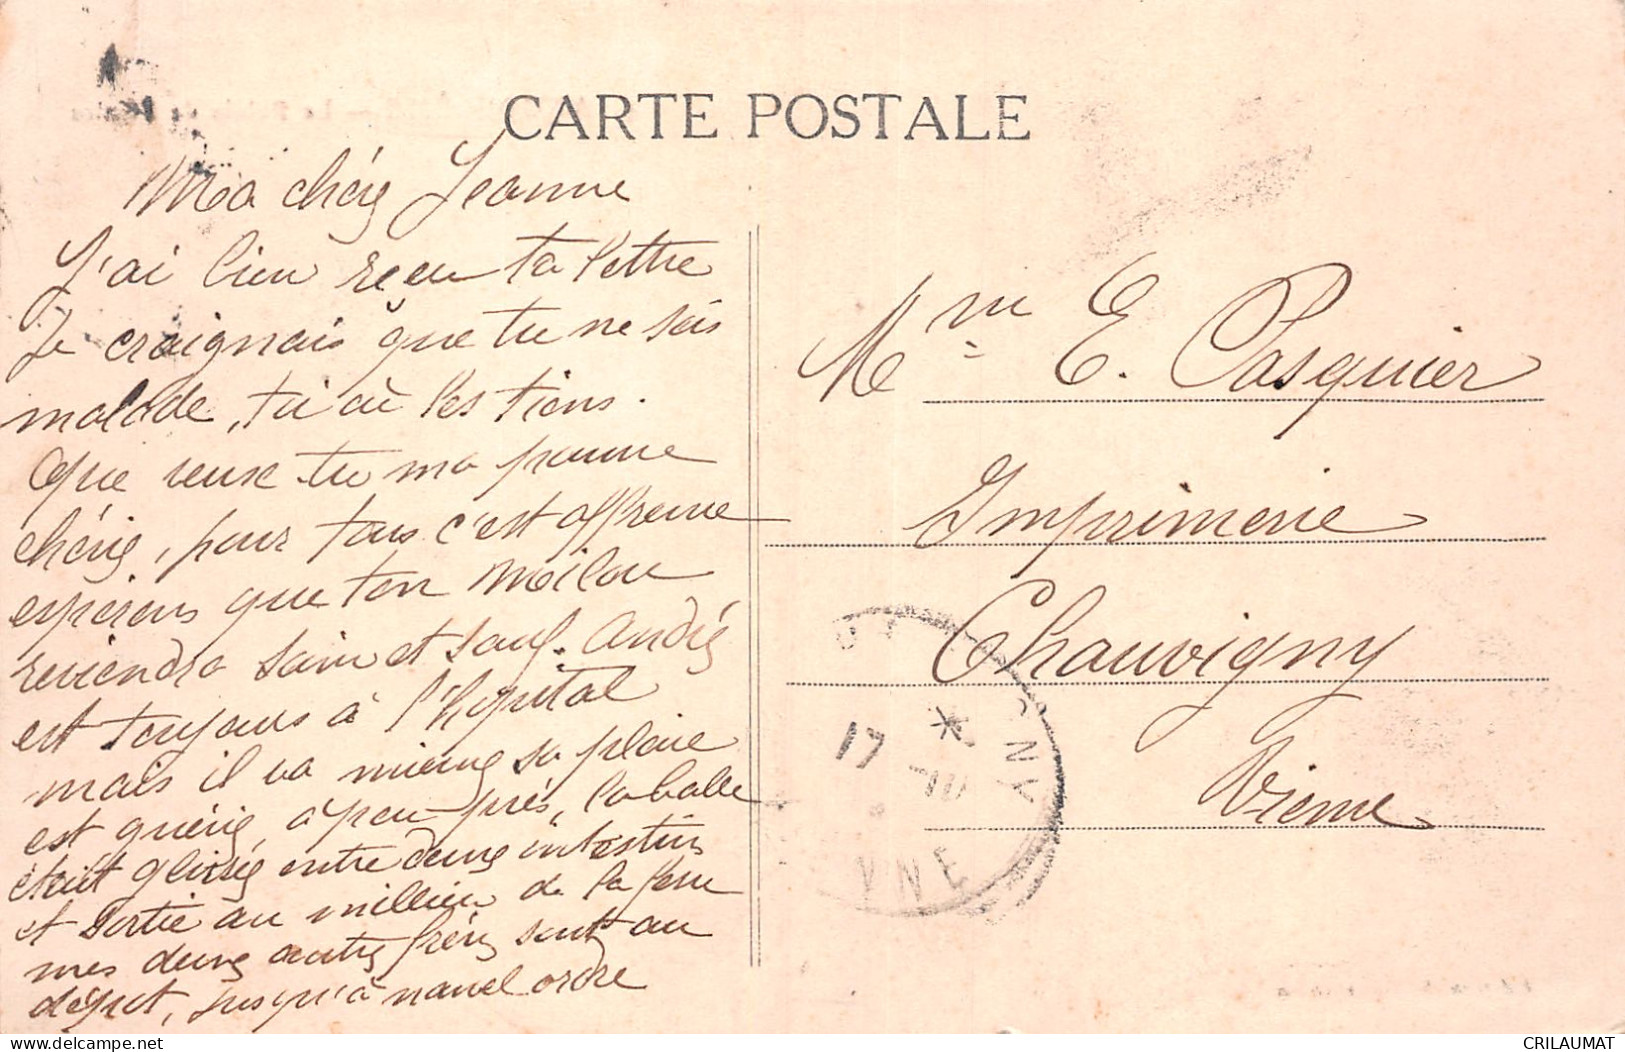 CARTE POSTALE
Ma chérie Jeanne
J'ai bien reçu ta lettre
Je craignais que tu ne sois
malade, toi où les tiens.
Que veux-tu ma pauvre
chérie, pour tous c'est affreux
esperons que ton Milou
reviendra sain et sauf. André
est toujours à l'hôpital
mais il va mieux sa plaie
est guérie, à peu près, la balle
était glissée entre deux intestins
et sortie au millieu de la fesse
mes deux autres frères sont au
dépôt, jusqu'à nouvel ordre
Mme E. Pasquier
Imprimerie
Chauvigny
Vienne
17
VNE
delcampe.net
CRILAUMAT